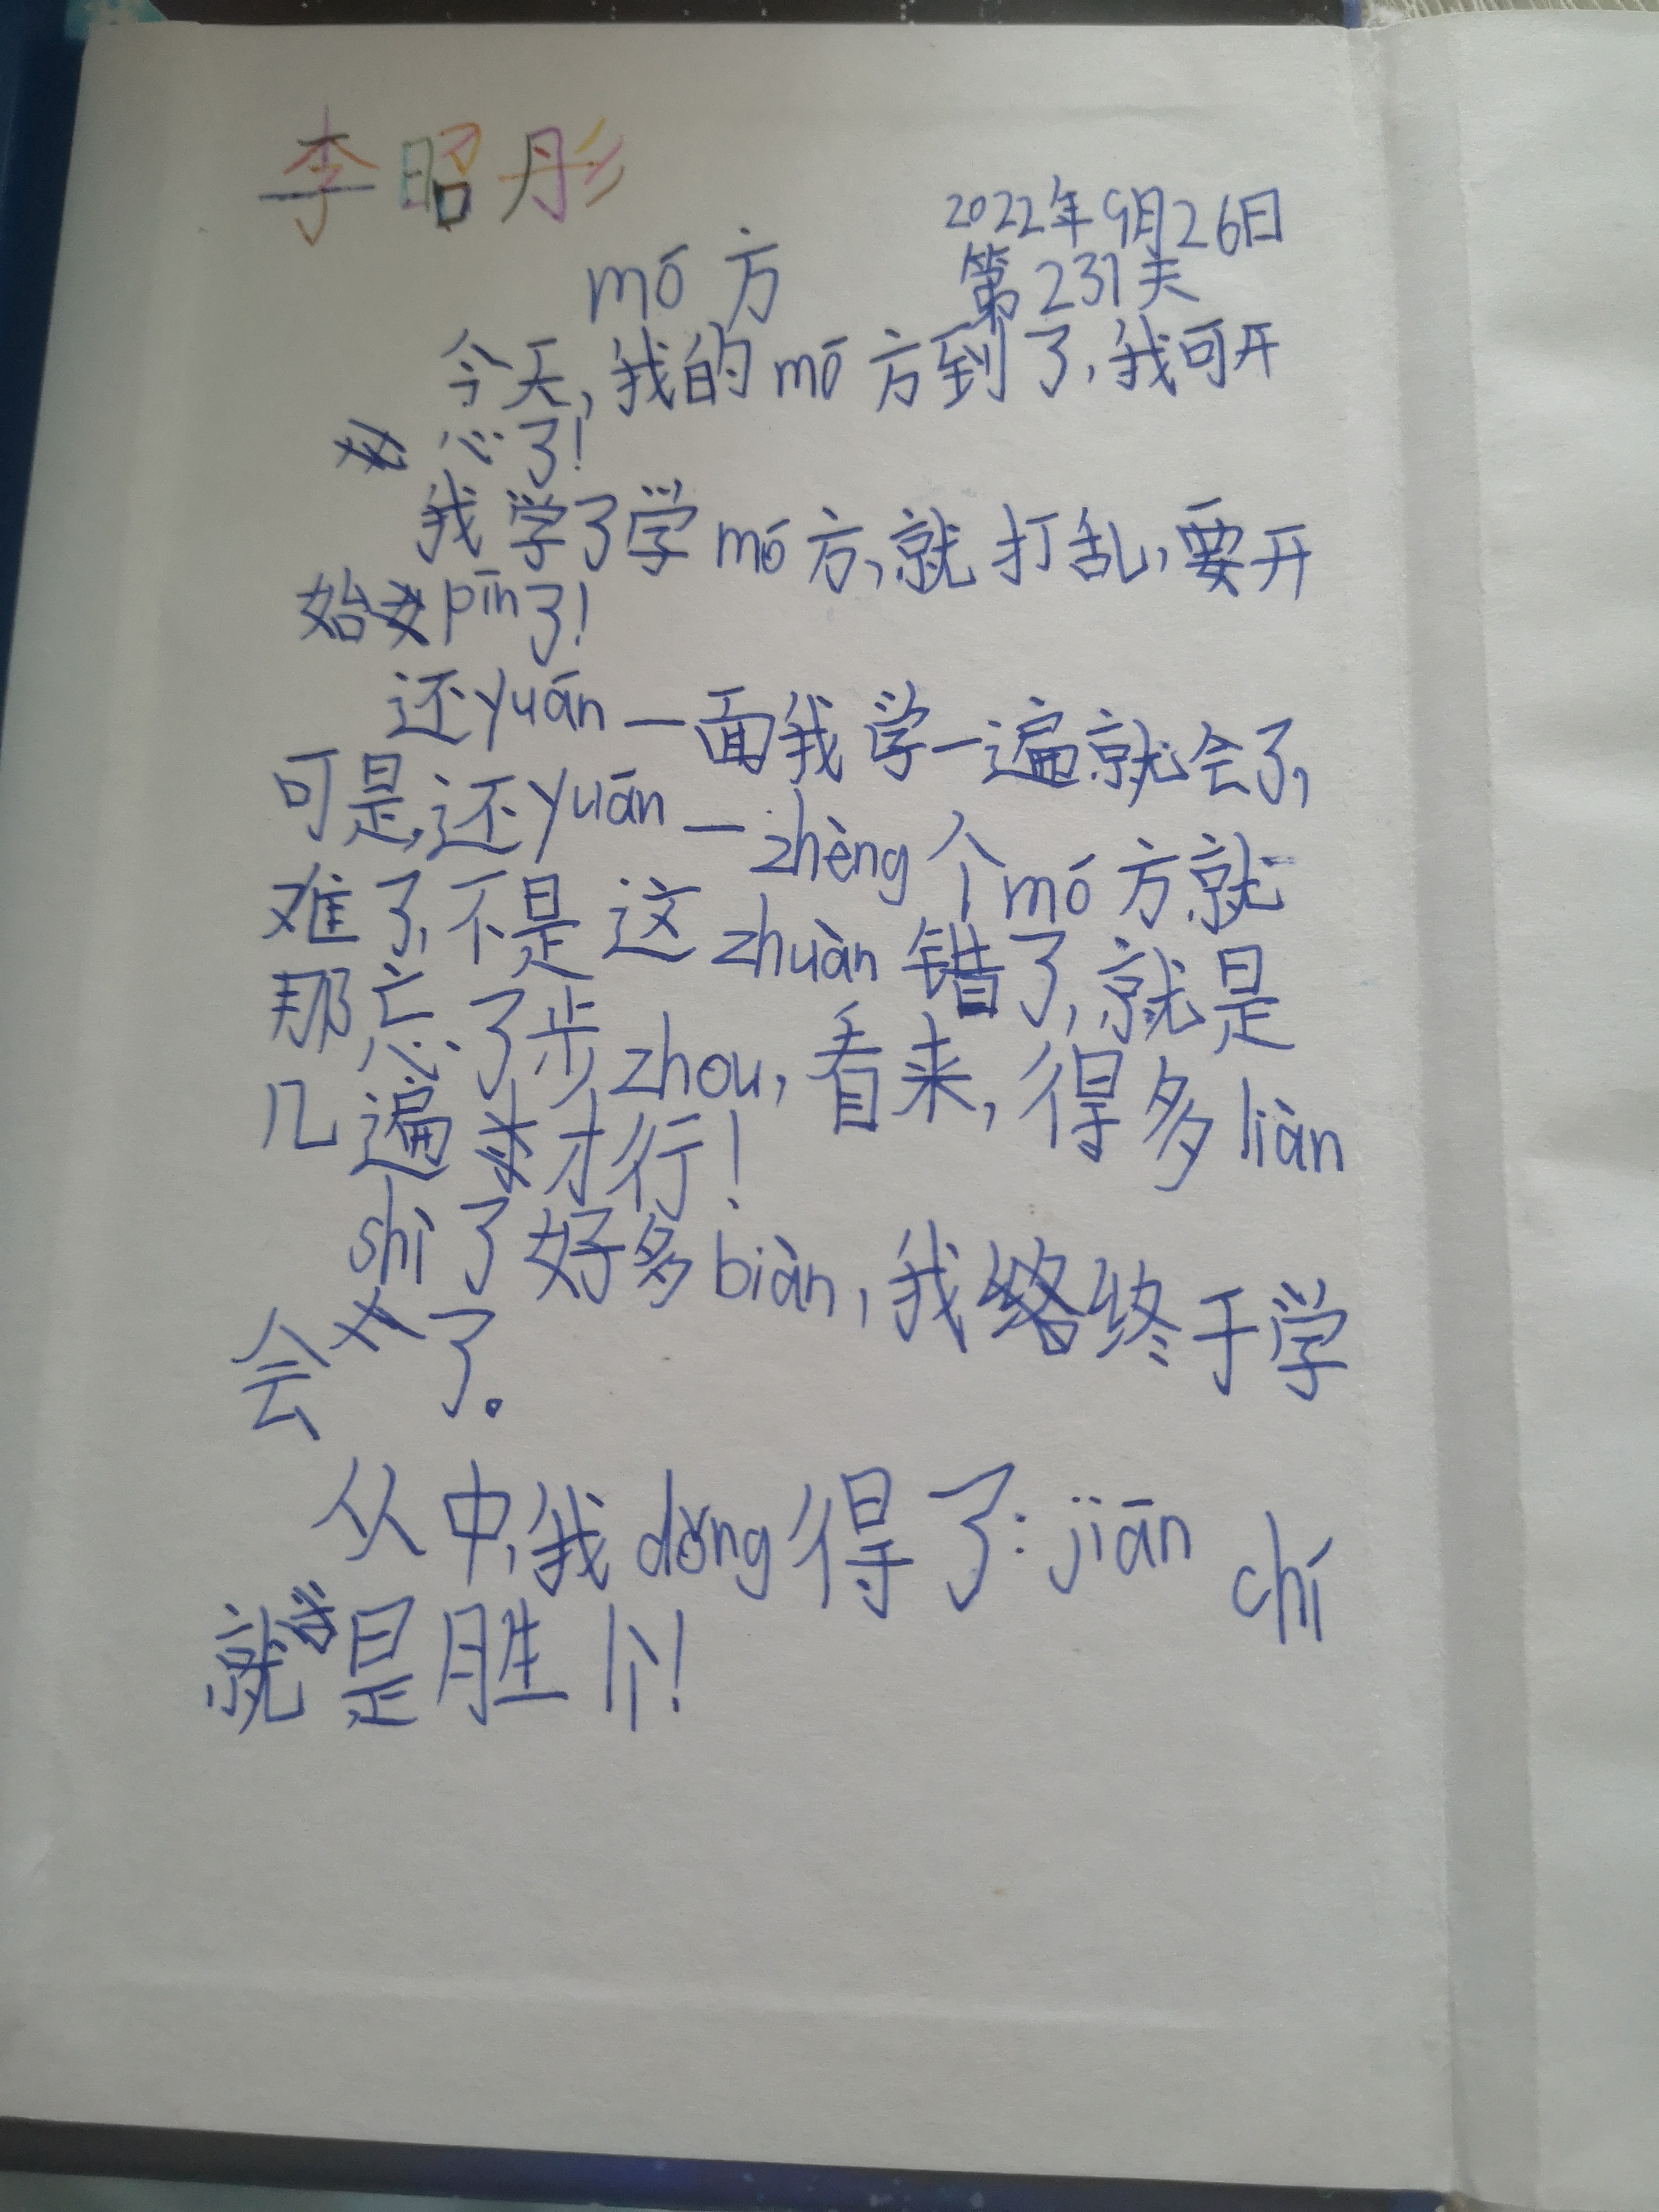 李昭彤
2022年9月26日
mó方
第231天
今天,我的mó方到了,我可开
心了!
我学了学mó方,就打乱,要开
始pīn了!
还yuán一面我学一遍就会了,
可是,还yuán一zhèng个mó方就
难了,不是这zhuàn错了,就是
那忘了步zhou,看来,得多liàn
几遍才行!
shì了好多biàn,我终于学
会了。
从中,我dǒng得了:jiān chí
就是胜个!